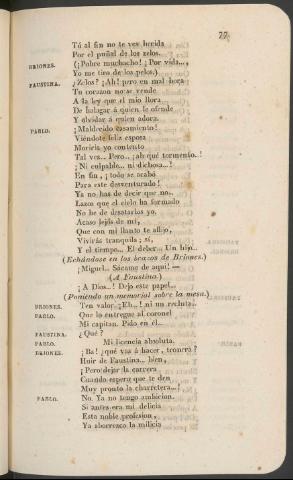 77
Tú al fin no te ves herida
Por el puñal de los zelos.
BRIONES. (¡Pobre muchacho! ¡Por vida...,
Yo me tiro de los pelos.)
FAUSTINA. ¿Zelos? ¡Ah! pero en mal hora
Tu corazon no se vende
A la ley que el mio llora
De halagar á quien le ofende
Y olvidar á quien adora.
PABLO. ¡Maldecido casamiento!
Viéndote feliz esposa
Moriria yo contento
Tal vez... Pero... ¡ah qué tormento..!
¡Ni culpable... ni dichosa..!
En fin, ¡todo se acabó
Para este desventurado!
Ya no has de decir que no.
Lazos que el cielo ha formado
No he de desatarlos yo.
Acaso lejos de mí,
Que con mi llanto te aflijo,
Vivirás tranquila; sí,
Y el tiempo... El deber... Un hijo...
(Echándose en los brazos de Briones.)
¡Miguel.. Sácame de aquí! —
(A Faustina.)
¡A Dios...! Dejo este papel..
(Poniendo un memorial sobre la mesa.)
BRIONES. Ten valor. ¡Eh..! ni un recluta!.
PABLO. Que lo entregue al coronel
Mi capitan. Pido en él..
FAUSTINA. ¿Qué?
PABLO. Mi licencia absoluta.
BRIONES. ¡Ba! ¿qué vas á hacer, tronera?
Huir de Faustina... bien,
¡Pero dejar la carrera
Cuando espero que te den
Muy pronto la charretera...!
PABLO. No. Ya no tengo ambicion.
Si antes era mi delicia
Esta noble profesion,
Ya aborrezco la milicia